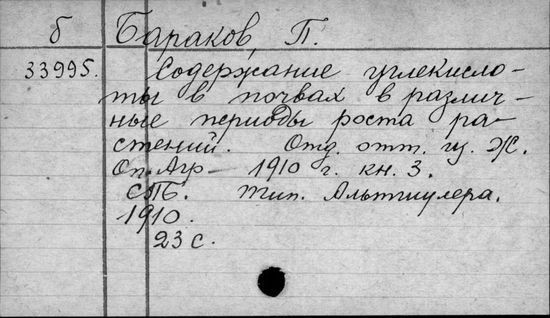 б Бараков, П.
33995. Содержание углекисло-
ты в почвах в различ-
ные периоды роста ра-
стений. Отд. отт. из Ж.
Оп. Агр— 1910 г. кн. 3.
СПБ. тип. Альтшулера.
1910.
23 с.